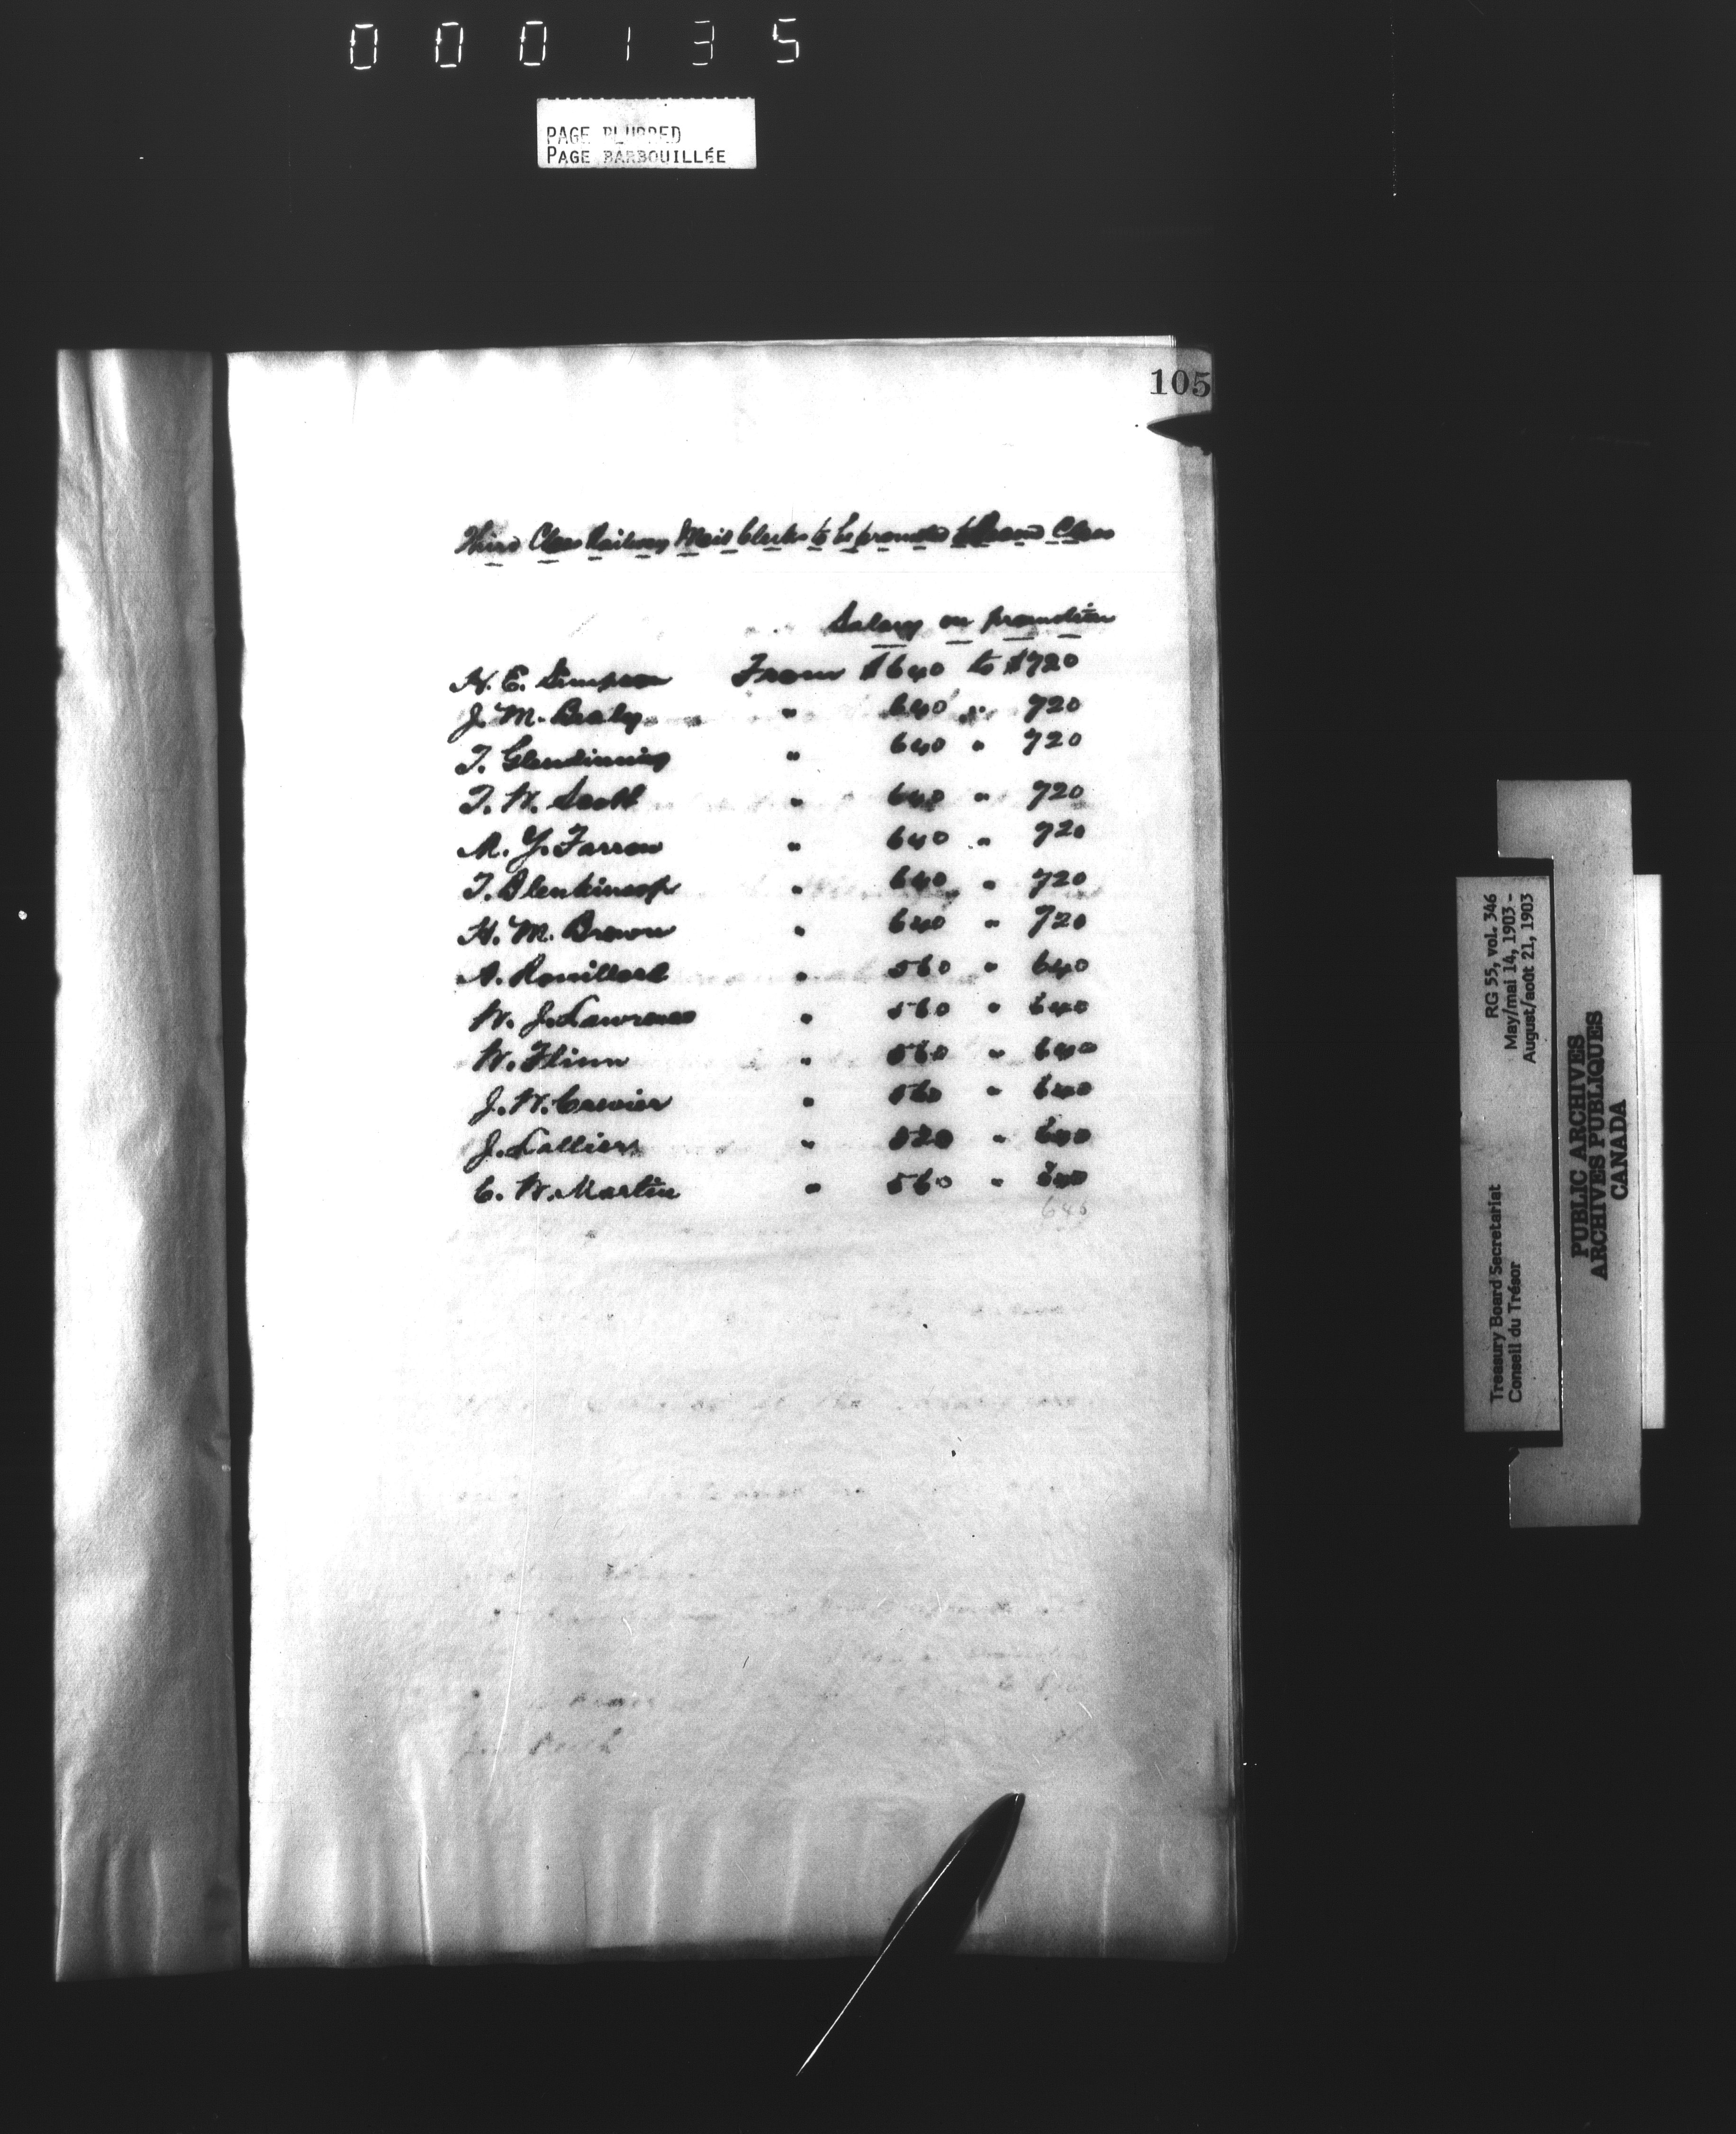 000135
PAGE BLURRED
PAGE BARBOUILLÉE
105
Third Class Railway Mail Clerks to be promoted to Second Class
Salary on promotion
H. E. Simpson From $640 to $720
J. M. Bealy " 640 " 720
T. Glendinning " 640 " 720
T. W. Scott " 640 " 720
M. Y. Farrow " 640 " 720
T. Blenkinsop " 640 " 720
H. M. Brown " 640 " 720
A. Rouillard " 560 " 640
W. J. Lawrence " 560 " 640
W. Flinn " 560 " 640
J. W. " 560 " 640
J. Lallier " 520 " 640
C. W. Martin " 560 " 640
640
Treasury Board Secretariat RG 55, vol. 346
Conseil du Trésor May/mai 14, 1903 -
August/août 21, 1903
PUBLIC ARCHIVES
ARCHIVES PUBLIQUES
CANADA